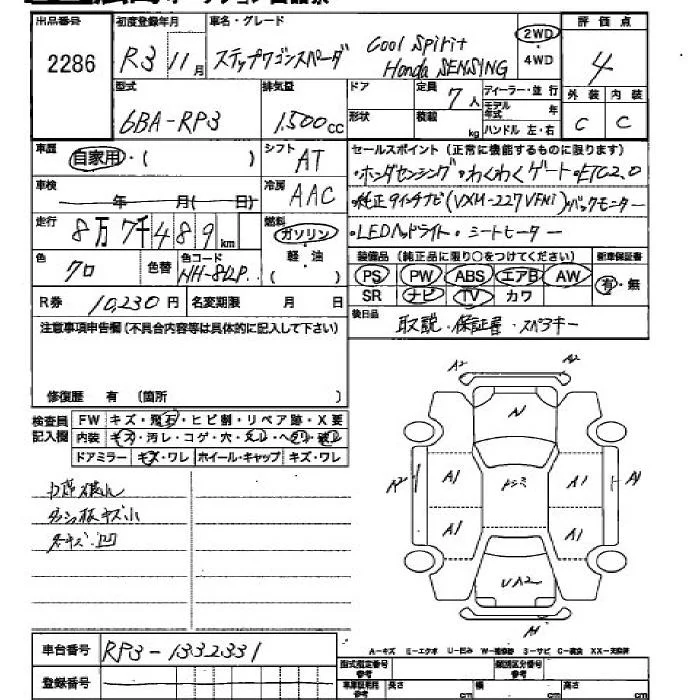 出品番号 初度登録年月 車名・グレード 評価点
2286 R3 11月 ステップワゴンスパーダ Cool Spirit Honda SENSING 2WD・4WD 4
型式 排気量 ドア 定員 7人 ディーラー・並行 外装 内装
6BA-RP3 1,500cc 形状 積載 kg モデル年式 年 ハンドル 左・右 C C
車歴 自家用・( ) シフト AT セールスポイント(正常に機能するものに限ります)
・ホンダセンシング・わくわくゲート・ETC2.0
車検 年 月( 日) 冷房 AAC ・純正9インチナビ(VXM-227VFNi)バックモニター
走行 8万7千489km 燃料 ガソリン・軽・油 ・LEDヘッドライト・シートヒーター
装備品(純正品に限り○をつけてください) 新車保証書
色 クロ 色替 色コード NH-812P PS PW ABS エアB AW 有・無
SR ナビ TV カワ
R券 10,230円 名変期限 月 日 後日品 取説・保証書・スペアキー
注意事項申告欄(不具合内容等は具体的に記入して下さい)
修復歴 有 (箇所 )
検査員記入欄 FW キズ・飛石・ヒビ割・リペア跡・X要
内装 キズ・汚レ・コゲ・穴・
ドアミラー キズ・ワレ ホイール・キャップ キズ・ワレ
A2 A2
A
A2 A1 A1 A1
A1 A1
小キズ・凹
UA2
A1
A-キズ E-エクボ U-凹ミ W-補修跡 S-サビ C-腐食 XX-交換済
車台番号 RP3-1332331
型式指定番号 参考 類別区分番号 参考
登録番号 車車証用 参考 長さ cm 幅 cm 高さ cm